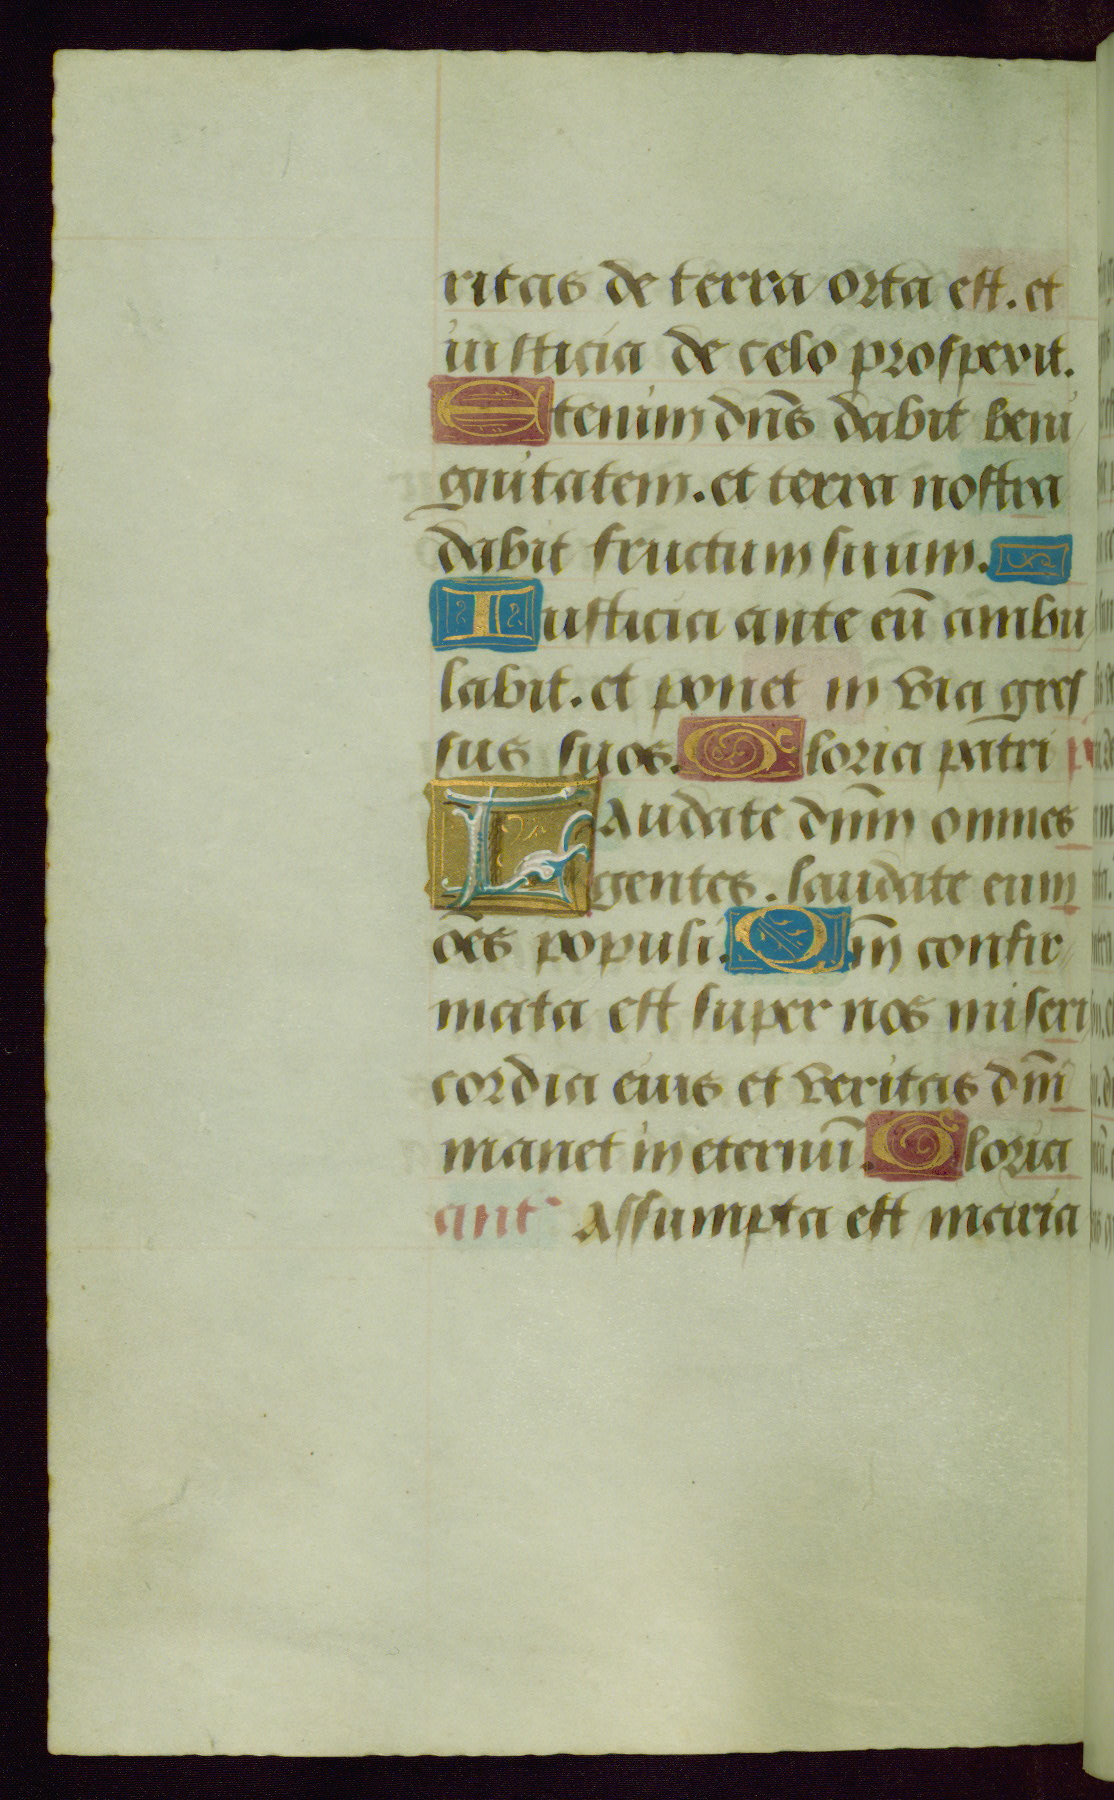 ritas de terra orta est. et
iusticia de celo prospexit.
Etenim dñs dabit beni
gnitatem. et terra nostra
dabit fructum suum.
Iusticia ante eū ambu
labit. et ponet in via gres
sus suos. Gloria patri
Laudate dñm omnes
gentes. laudate eum
oēs populi. Qm̄ confir
mata est super nos miseri
cordia eius et veritas dñi
manet in eternū. Gloria
ant Assumpta est maria